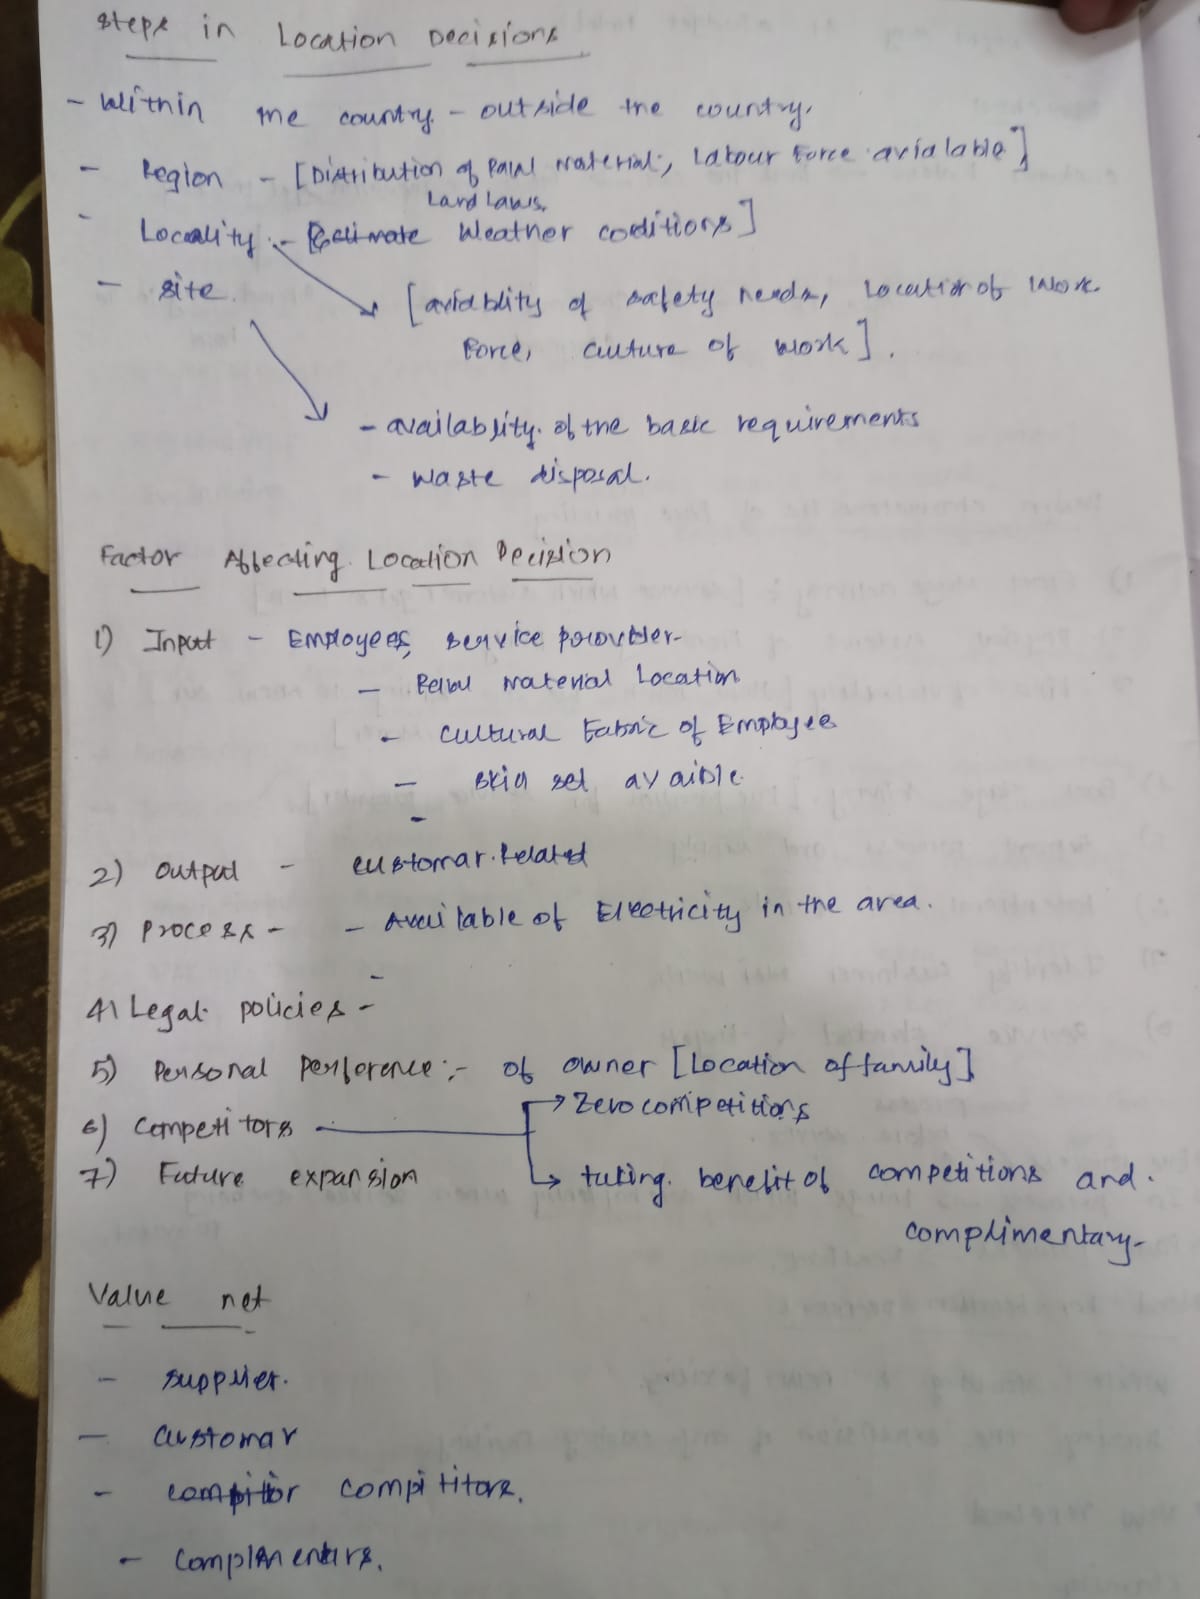 Steps in Location Decisions
- Within the country - outside the country.
- Region - [Distribution of Raw Material, Labour Force avialable]
Land Laws,
- Locality :- Weather coditions]
- site.
[aviablity of safety needs, Location of Work
Force, cuture of work].
- availablity of the basic requirements
- waste disposal.
Factor Affecting Location Decision
1) Input - Employees, service porovider
- Raw Material Location
- Cultural Fabric of Employee
- skill set avaible
-
2) Output - customar Related
3) Process - - Available of Electricity in the area.
-
4) Legal policies -
5) Personal Perference :- of owner [Location of family]
6) Competitors → Zero competitions
7) Future expansion ↳ taking benefit of competitions and
complimentary
Value net
- supplier.
- customar
- compitior compititors.
- complementers.